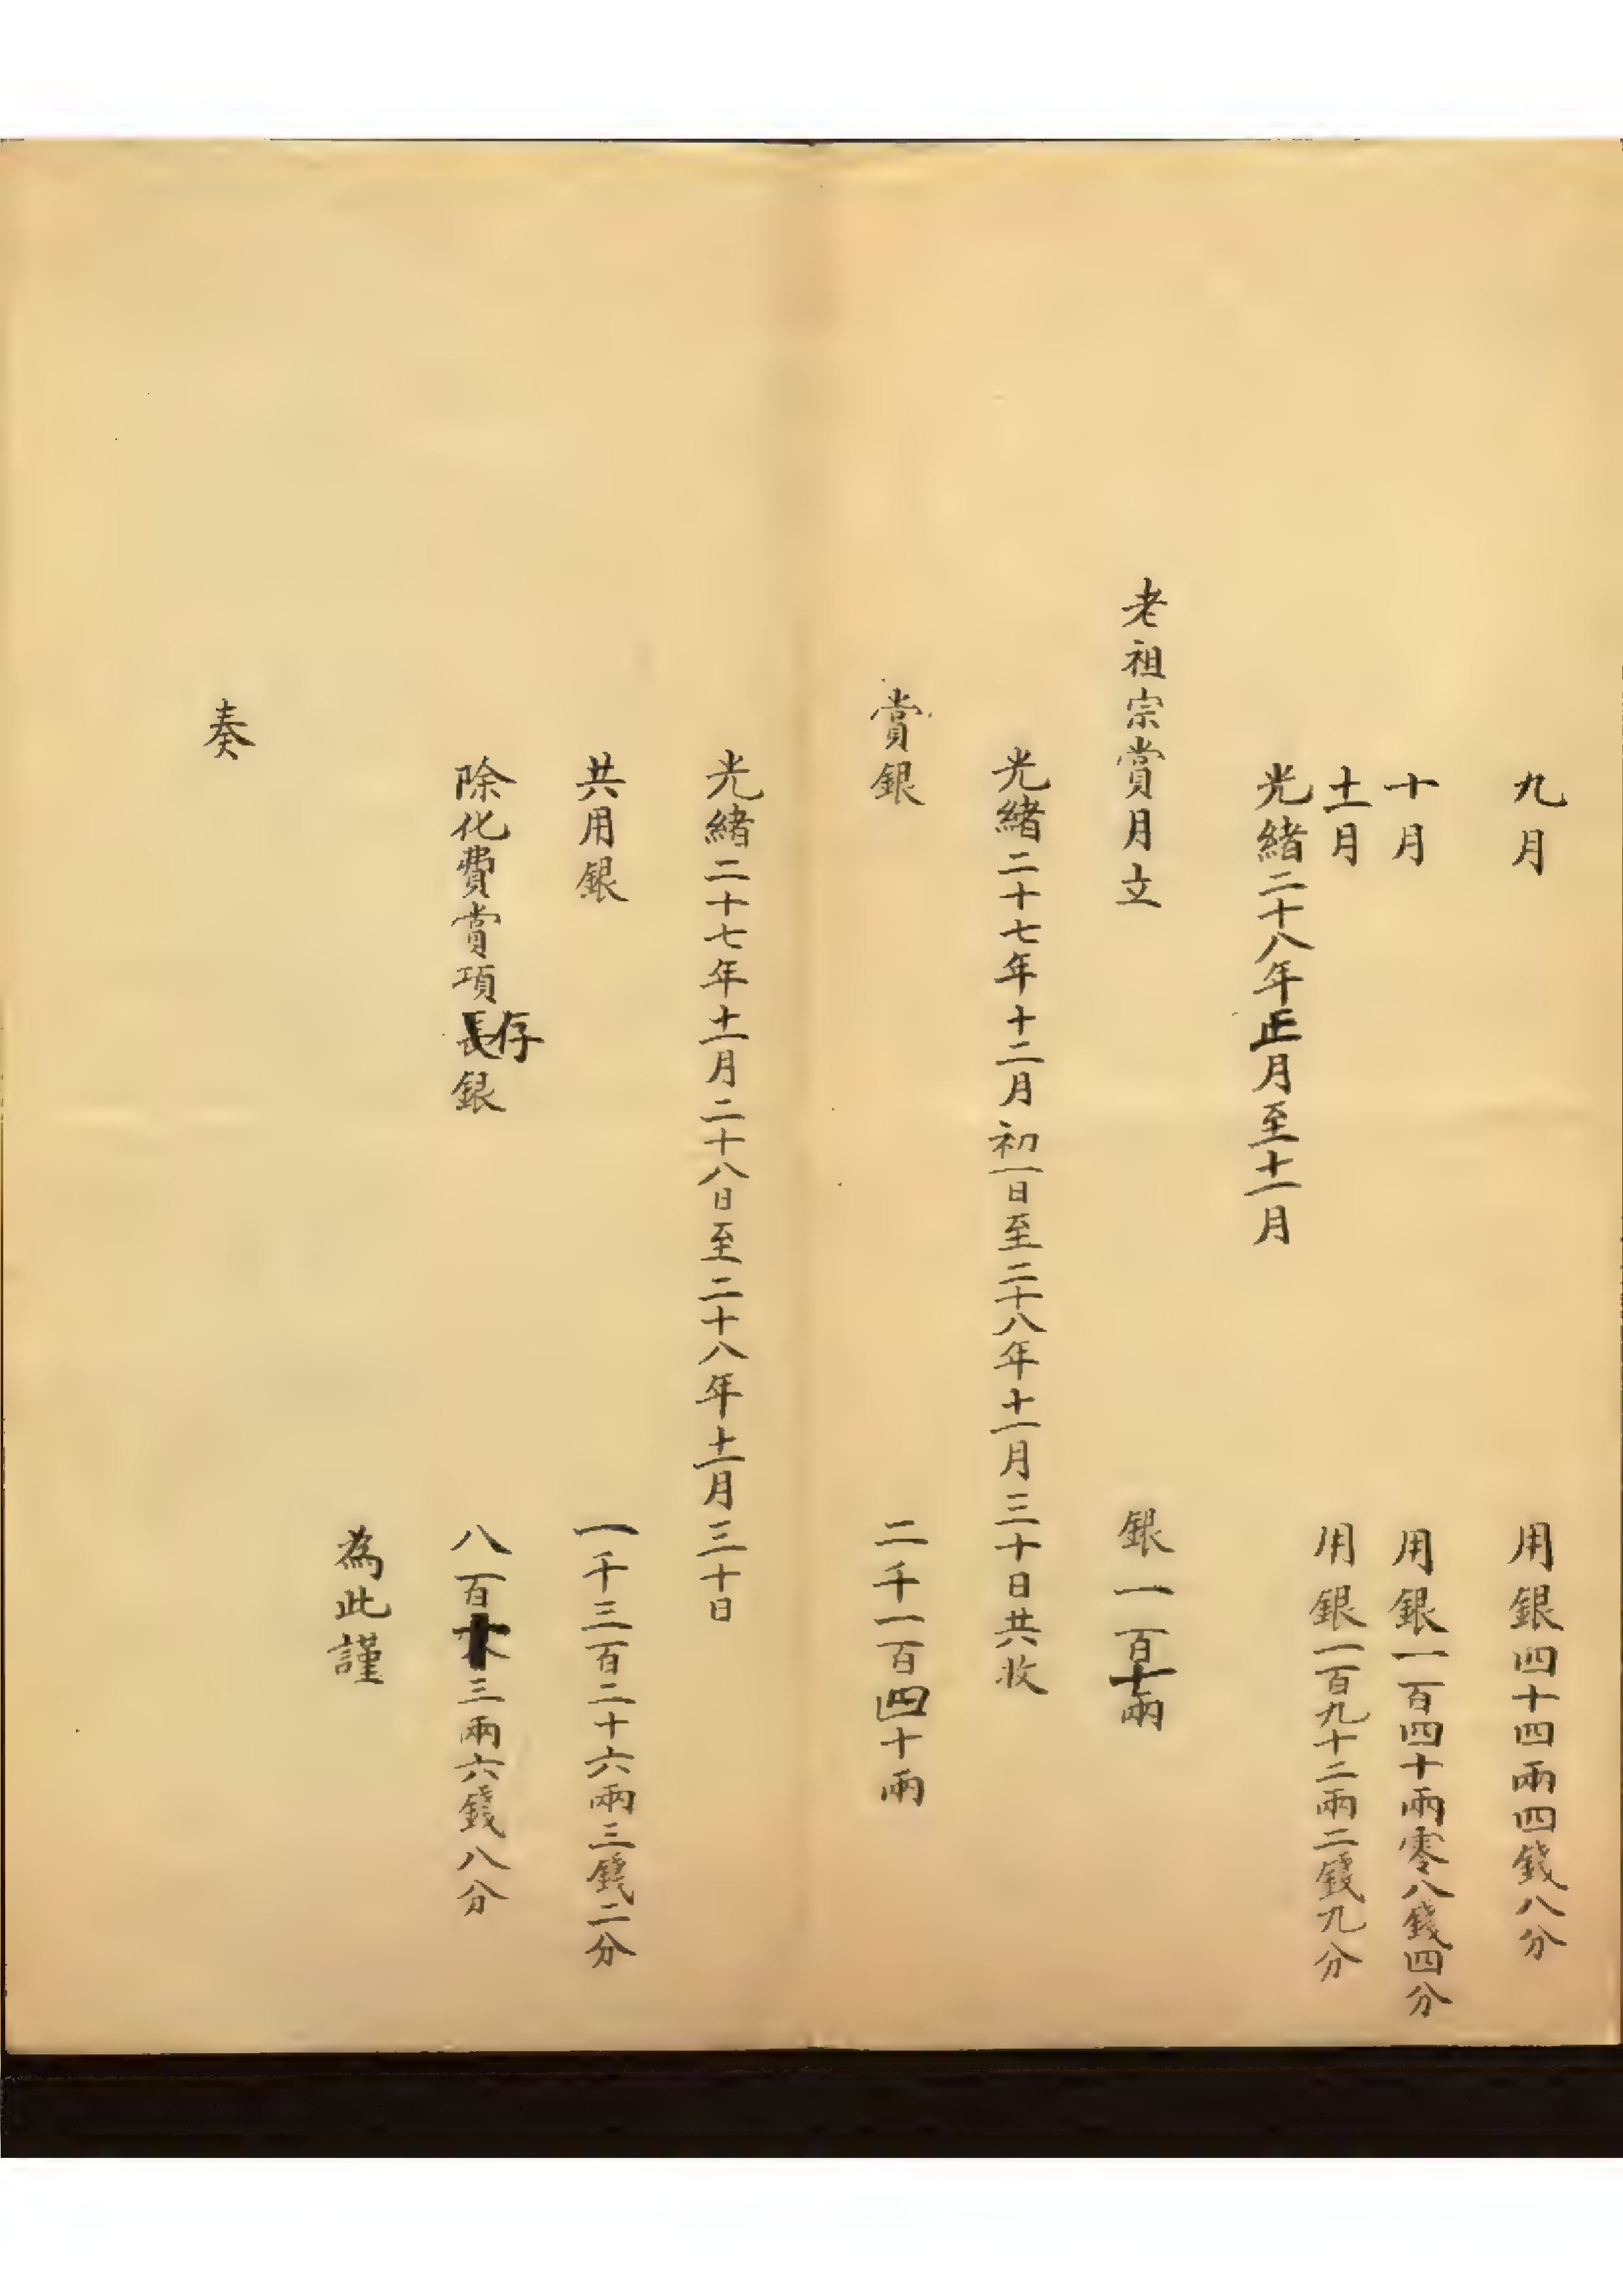 九月　用銀四十四兩四錢八分
十月　用銀一百四十兩零八錢四分
十一月　用銀一百九十二兩二錢九分
光緒二十八年正月至十一月
老祖宗賞月立　銀一百十兩
光緒二十七年十二月初一日至二十八年十一月三十日共收
賞銀　二千一百四十兩
光緒二十七年十一月二十八日至二十八年十一月三十日
共用銀　一千三百二十六兩三錢二分
除化費賞項存銀　八百十三兩六錢八分
為此謹
奏